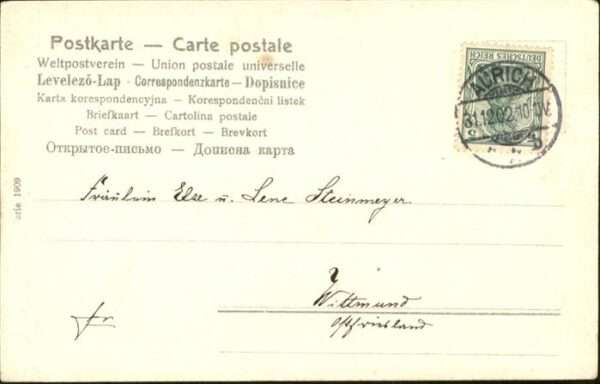 Postkarte — Carte postale
Weltpostverein — Union postale universelle
Levelező-Lap - Correspondenzkarte — Dopisnice
Karta korespondencyjna — Korespondenční listek
Briefkaart — Cartolina postale
Post card — Brefkort — Brevkort
Открытое-письмо — Дописна карта
DEUTSCHES REICH
AURICH
31.12.02.10-11V.
5
b
Fräulein Else u. Lene Steinmeyer.
Wittmund
Ostfriesland
fr
erie 1909